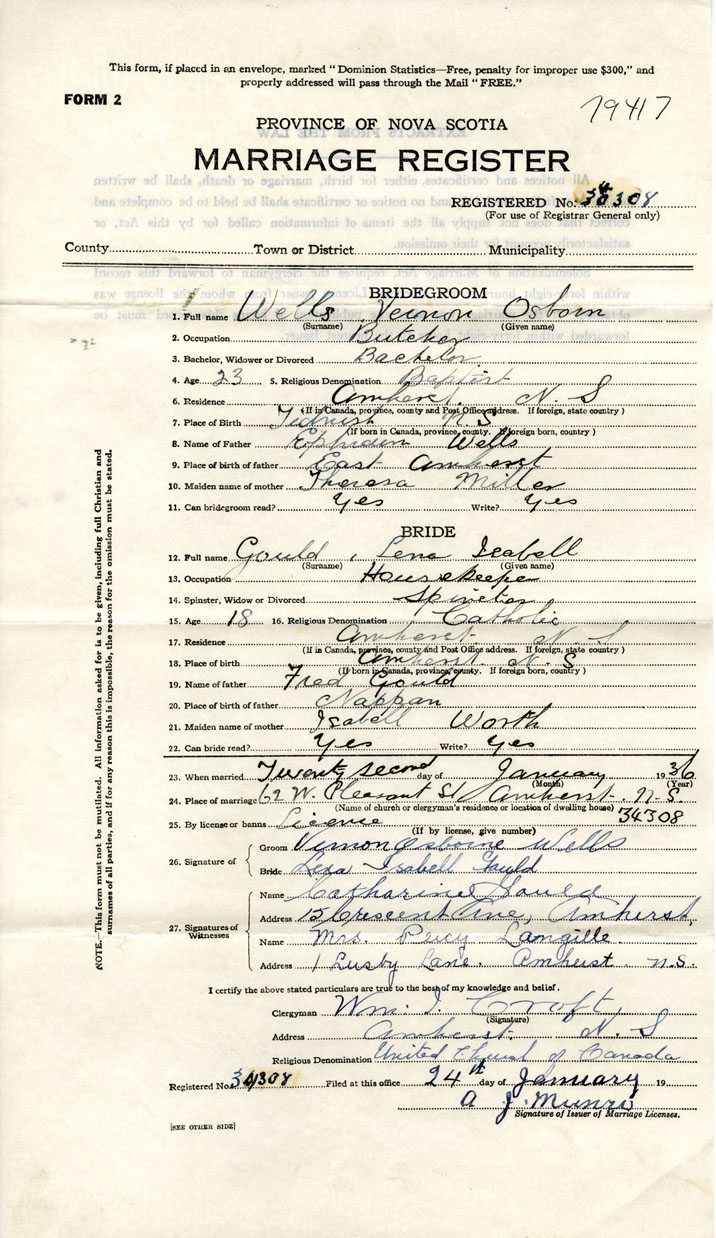 This form, if placed in an envelope, marked "Dominion Statistics—Free, penalty for improper use $300," and
properly addressed will pass through the Mail "FREE."
FORM 2
79417
PROVINCE OF NOVA SCOTIA
MARRIAGE REGISTER
REGISTERED No. 34308
(For use of Registrar General only)
County Town or District Municipality
BRIDEGROOM
1. Full name Wells Vernon Osborn
(Surname) (Given name)
2. Occupation Butcher
3. Bachelor, Widower or Divorced Bachelor
4. Age 23 5. Religious Denomination Baptist
6. Residence Amherst. N. S
(If in Canada, province, county and Post Office address. If foreign, state country)
7. Place of Birth Tidnish N.S
(If born in Canada, province, county. If foreign born, country)
8. Name of Father Ephraim Wells
9. Place of birth of father East Amherst
10. Maiden name of mother Theresa Miller
11. Can bridegroom read? Yes Write? Yes
BRIDE
12. Full name Gould, Lena Isabell
(Surname) (Given name)
13. Occupation Housekeeper
14. Spinster, Widow or Divorced Spinster
15. Age 18 16. Religious Denomination Catholic
17. Residence Amherst. N. S
(If in Canada, province, county and Post Office address. If foreign, state country)
18. Place of birth Amherst N. S
(If born in Canada, province, county. If foreign born, country)
19. Name of father Fred Gould
20. Place of birth of father Nappan
21. Maiden name of mother Isabell Worth
22. Can bride read? Yes Write? Yes
23. When married Twenty second day of January 1936
(Month) (Year)
24. Place of marriage 62 W. Pleasant St Amherst. N. S.
(Name of church or clergyman's residence or location of dwelling house)
25. By license or banns License 34308
(If by license, give number)
26. Signature of
Groom Vernon Osborne Wells
Bride Lena Isabell Gould
27. Signatures of Witnesses
Name Catharine Gould
Address 15 Crescent Ave, Amherst,
Name Mrs. Percy Langille
Address 1 Lusby Lane. Amherst N.S.
I certify the above stated particulars are true to the best of my knowledge and belief.
Clergyman Wm. I. Croft
(Signature)
Address Amherst. N. S
Religious Denomination United Church of Canada
Registered No. 34308 Filed at this office 24th day of January 19
A J. Munro
Signature of Issuer of Marriage Licenses.
[SEE OTHER SIDE]
NOTE.—This form must not be mutilated. All information asked for is to be given, including full Christian and
surnames of all parties, and if for any reason this is impossible, the reason for the omission must be stated.